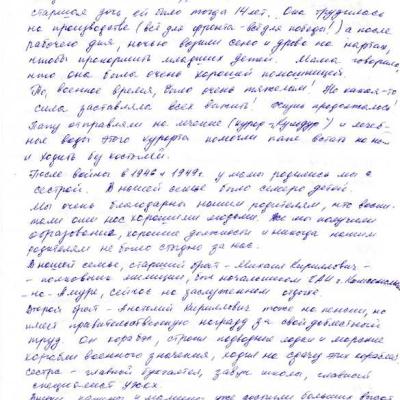 старшая дочь ей было тогда 14 лет. Она трудилась
на производстве (всё для фронта - всё для победы!) а после
рабочего дня, ночью возили сено и дрова на нартах,
чтобы прокормить младших детей. Мама говорила,
что она была очень хорошей помощницей.
То, военное время, было очень тяжелым! Но какая-то
сила заставляла всех выжить! Жизнь продолжалась!
Папу отправляли на лечение (курорт "Кульдур") и лечеб-
ные воды этого курорта помогли папе встать на но-
и ходить без костылей.
После войны в 1946 и 1949 г. у мамы родились мы с
сестрой. В нашей семье было семеро детей.
Мы очень благодарны нашим родителям, что воспи-
тали они нас хорошими людьми! Все мы получили
образование, хорошие должности и никогда нашим
родителям не было стыдно за нас.
В нашей семье, старший брат - Михаил Кириллович -
- полковник милиции, был начальником ГАИ г. Комсомольска
- на - Амуре, сейчас на заслуженном отдыхе.
Второй брат - Анатолий Кириллович тоже на пенсии, но
имеет правительственную награду за свой доблестный
труд. Он корабел, строил подводные лодки и морские
корабли военного значения, ходил на сдачу этих кораблей.
сестра - главный бухгалтер, завуч школы, главный
специалист